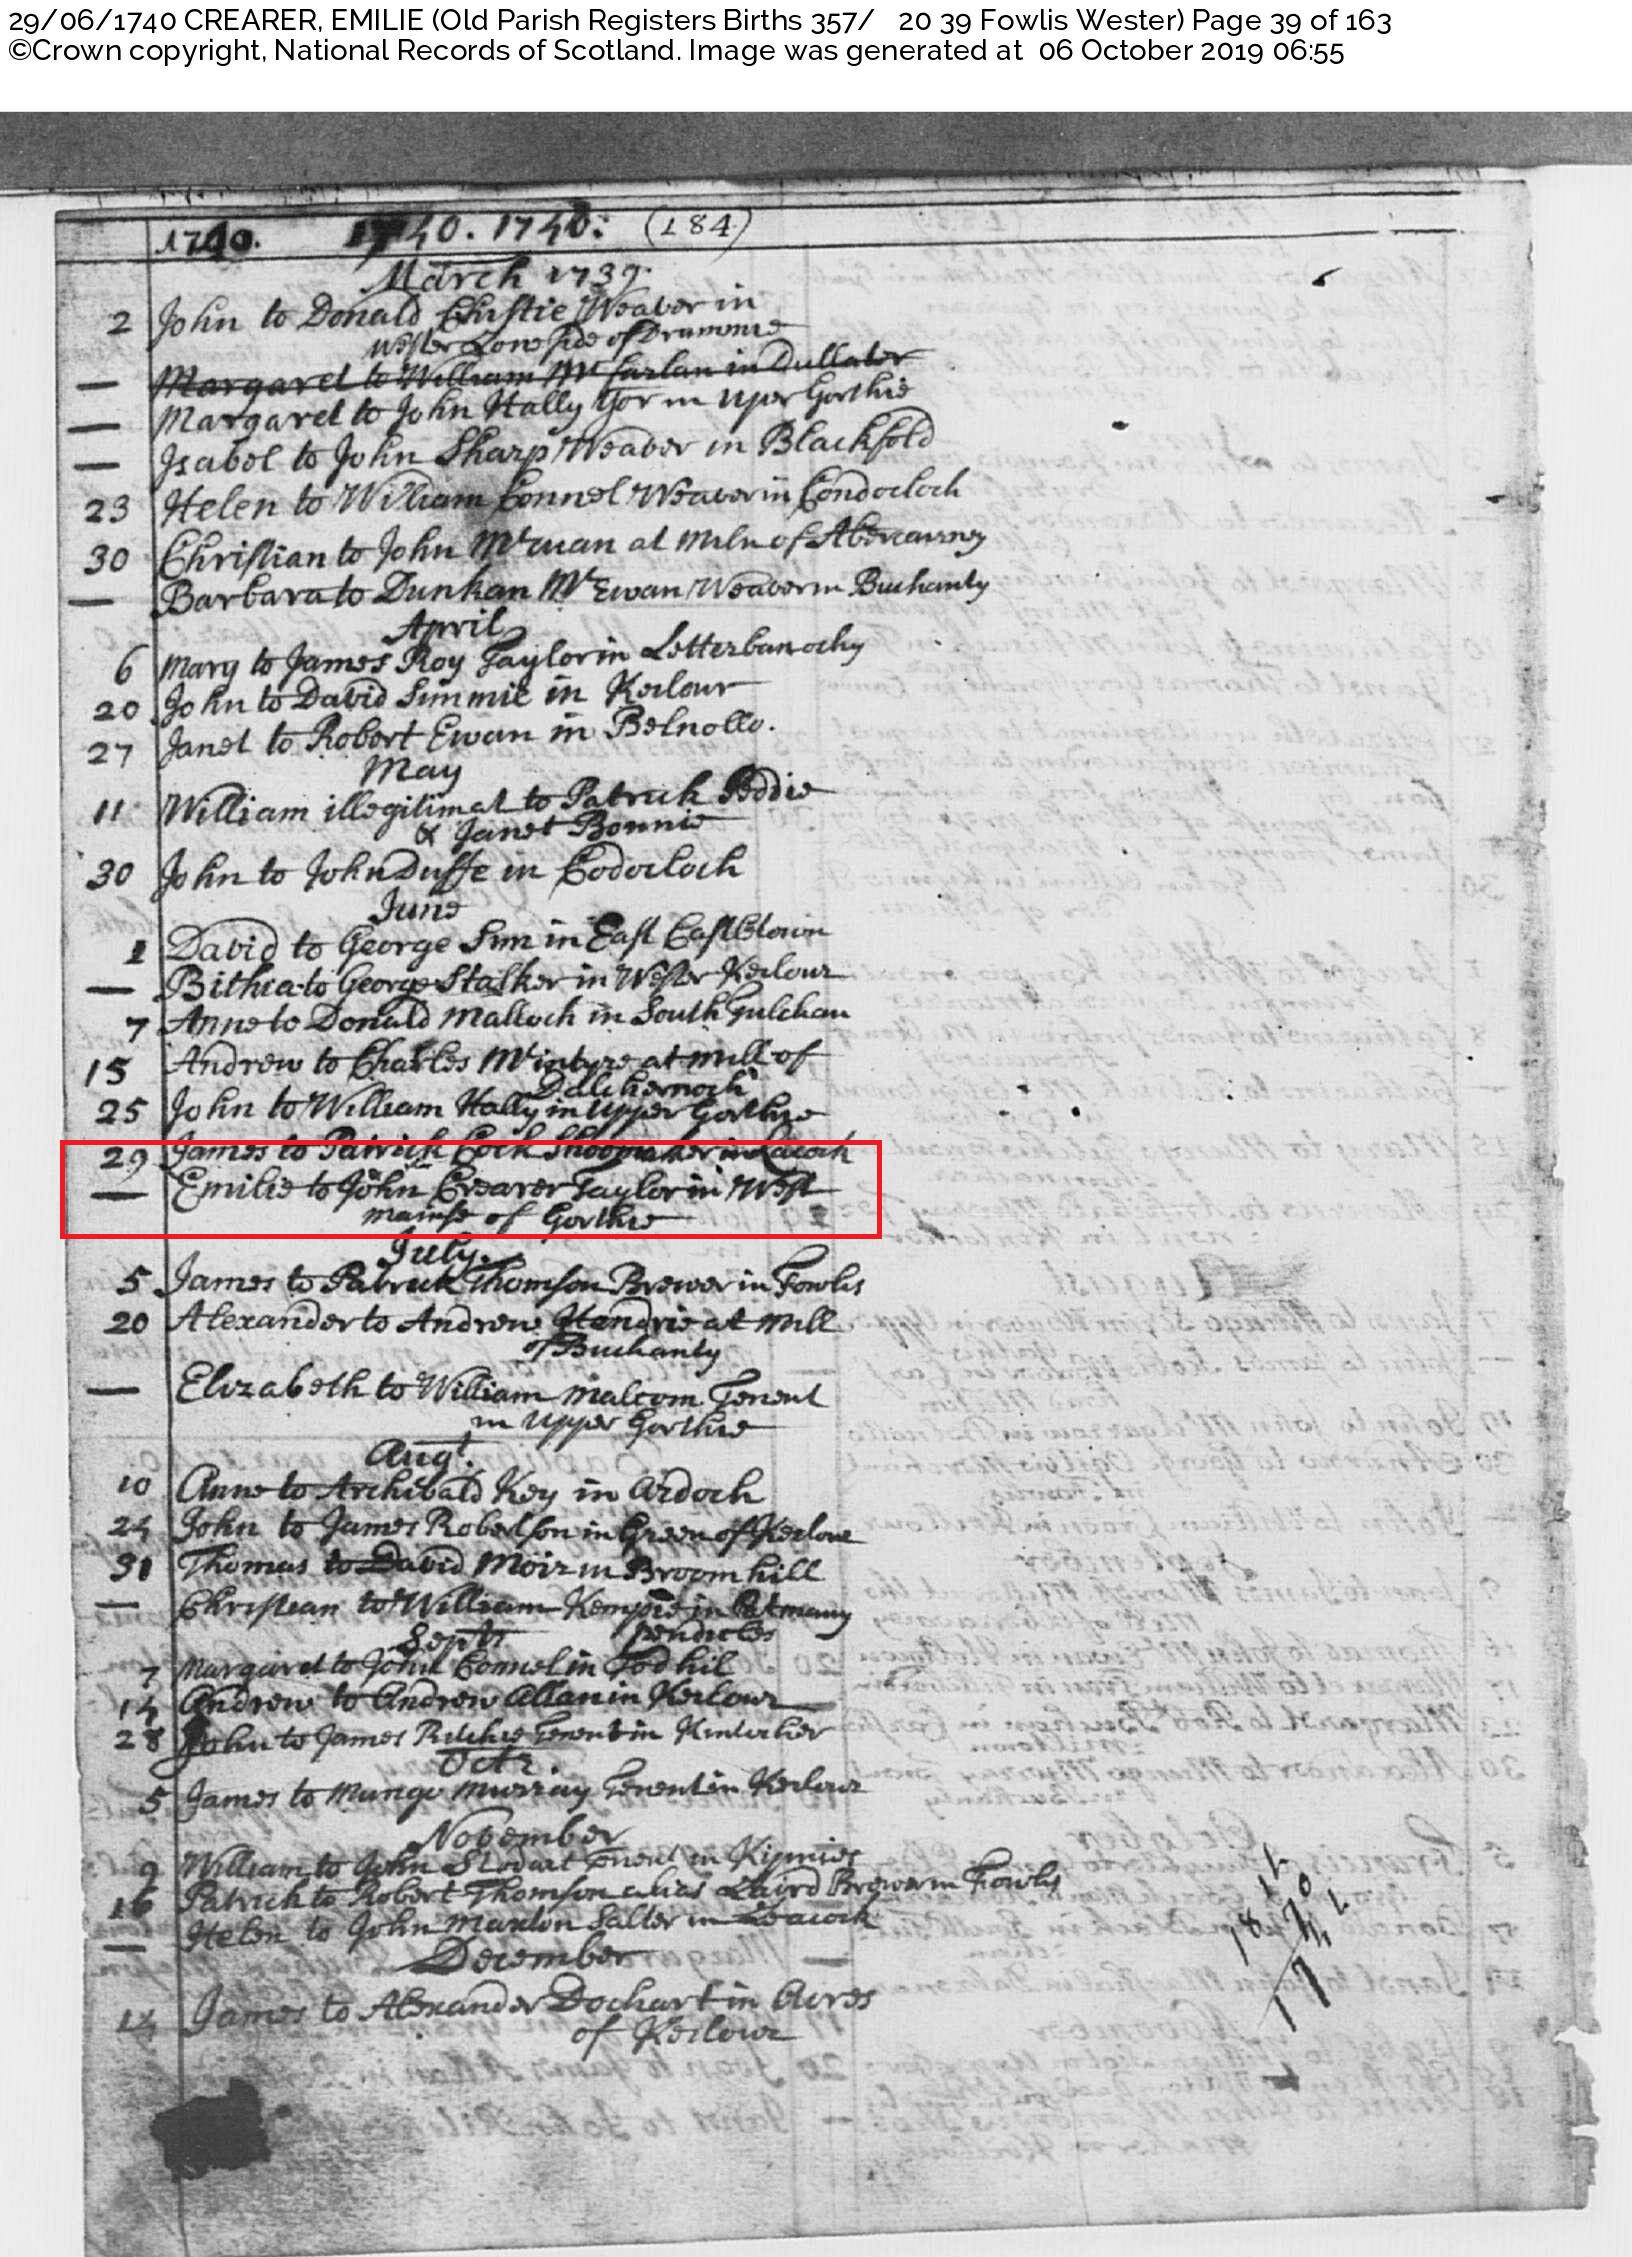 29/06/1740 CREARER, EMILIE (Old Parish Registers Births 357/ 20 39 Fowlis Wester) Page 39 of 163
©Crown copyright, National Records of Scotland. Image was generated at 06 October 2019 06:55
1740. 1740. 1740: (184)
March 1739.
2 John to Donald Christie Weaver in
Wester Lone side of Drummie
— Margaret to William Mcfarlan in Dullater
— Margaret to John Hally in Uper Gorthie
— Isabel to John Sharp Weaver in Blackfold
23 Helen to William Connel Weaver in Condocloch
30 Christian to John at Miln of Abercairney
— Barbara to Dunkan McEwan Weaver in Buchanty
April
6 Mary to James Roy Taylor in Letterbanochy
20 John to David Simmie in Keilour
27 Janet to Robert Ewan in Belnollo.
May
11 William illegitimat to Patrick Peddie
& Janet Bonnie
30 John to John Duffe in Codocloch
June
1 David to George Sim in East Castletown
— Bithia to George Stalker in Wester Keilour
7 Anne to Donald Malloch in South
15 Andrew to Charles McIntyre at Mill of
Dalchernoch
25 John to William Hally in Upper Gorthie
29 James to Patrick Cock Shoomaker in Lacock
— Emilie to John Crearer Taylor in West
mainse of Gorthie
July.
5 James to Patrick Thomson Brewer in Fowlis
20 Alexander to Andrew Hendrie at Mill
of Buchanty
— Elizabeth to William Malcom Tenent
in Upper Gorthie
Augt.
10 Anne to Archibald Key in Ardoch
24 John to James Robertson in Green of Keilour
31 Thomas to David Moir in Broomhill
— Christian to William Kempie in
pendicles
Septr
7 Margaret to John Connel in Todhil
14 Andrew to Andrew Allan in Keilour
28 John to James Ritchie Tenent in Kintocher
Octr.
5 James to Mungo Murray Tenent in Keilour
November
9 William to John Stodart Tenent in Kipnies
16 Patrick to Robert Thomson alias Laird Brewer in Fowlis
— Helen to John Maxton Salter in Leacock
December
14 James to Alexander Dochart in Acres
of Keilour